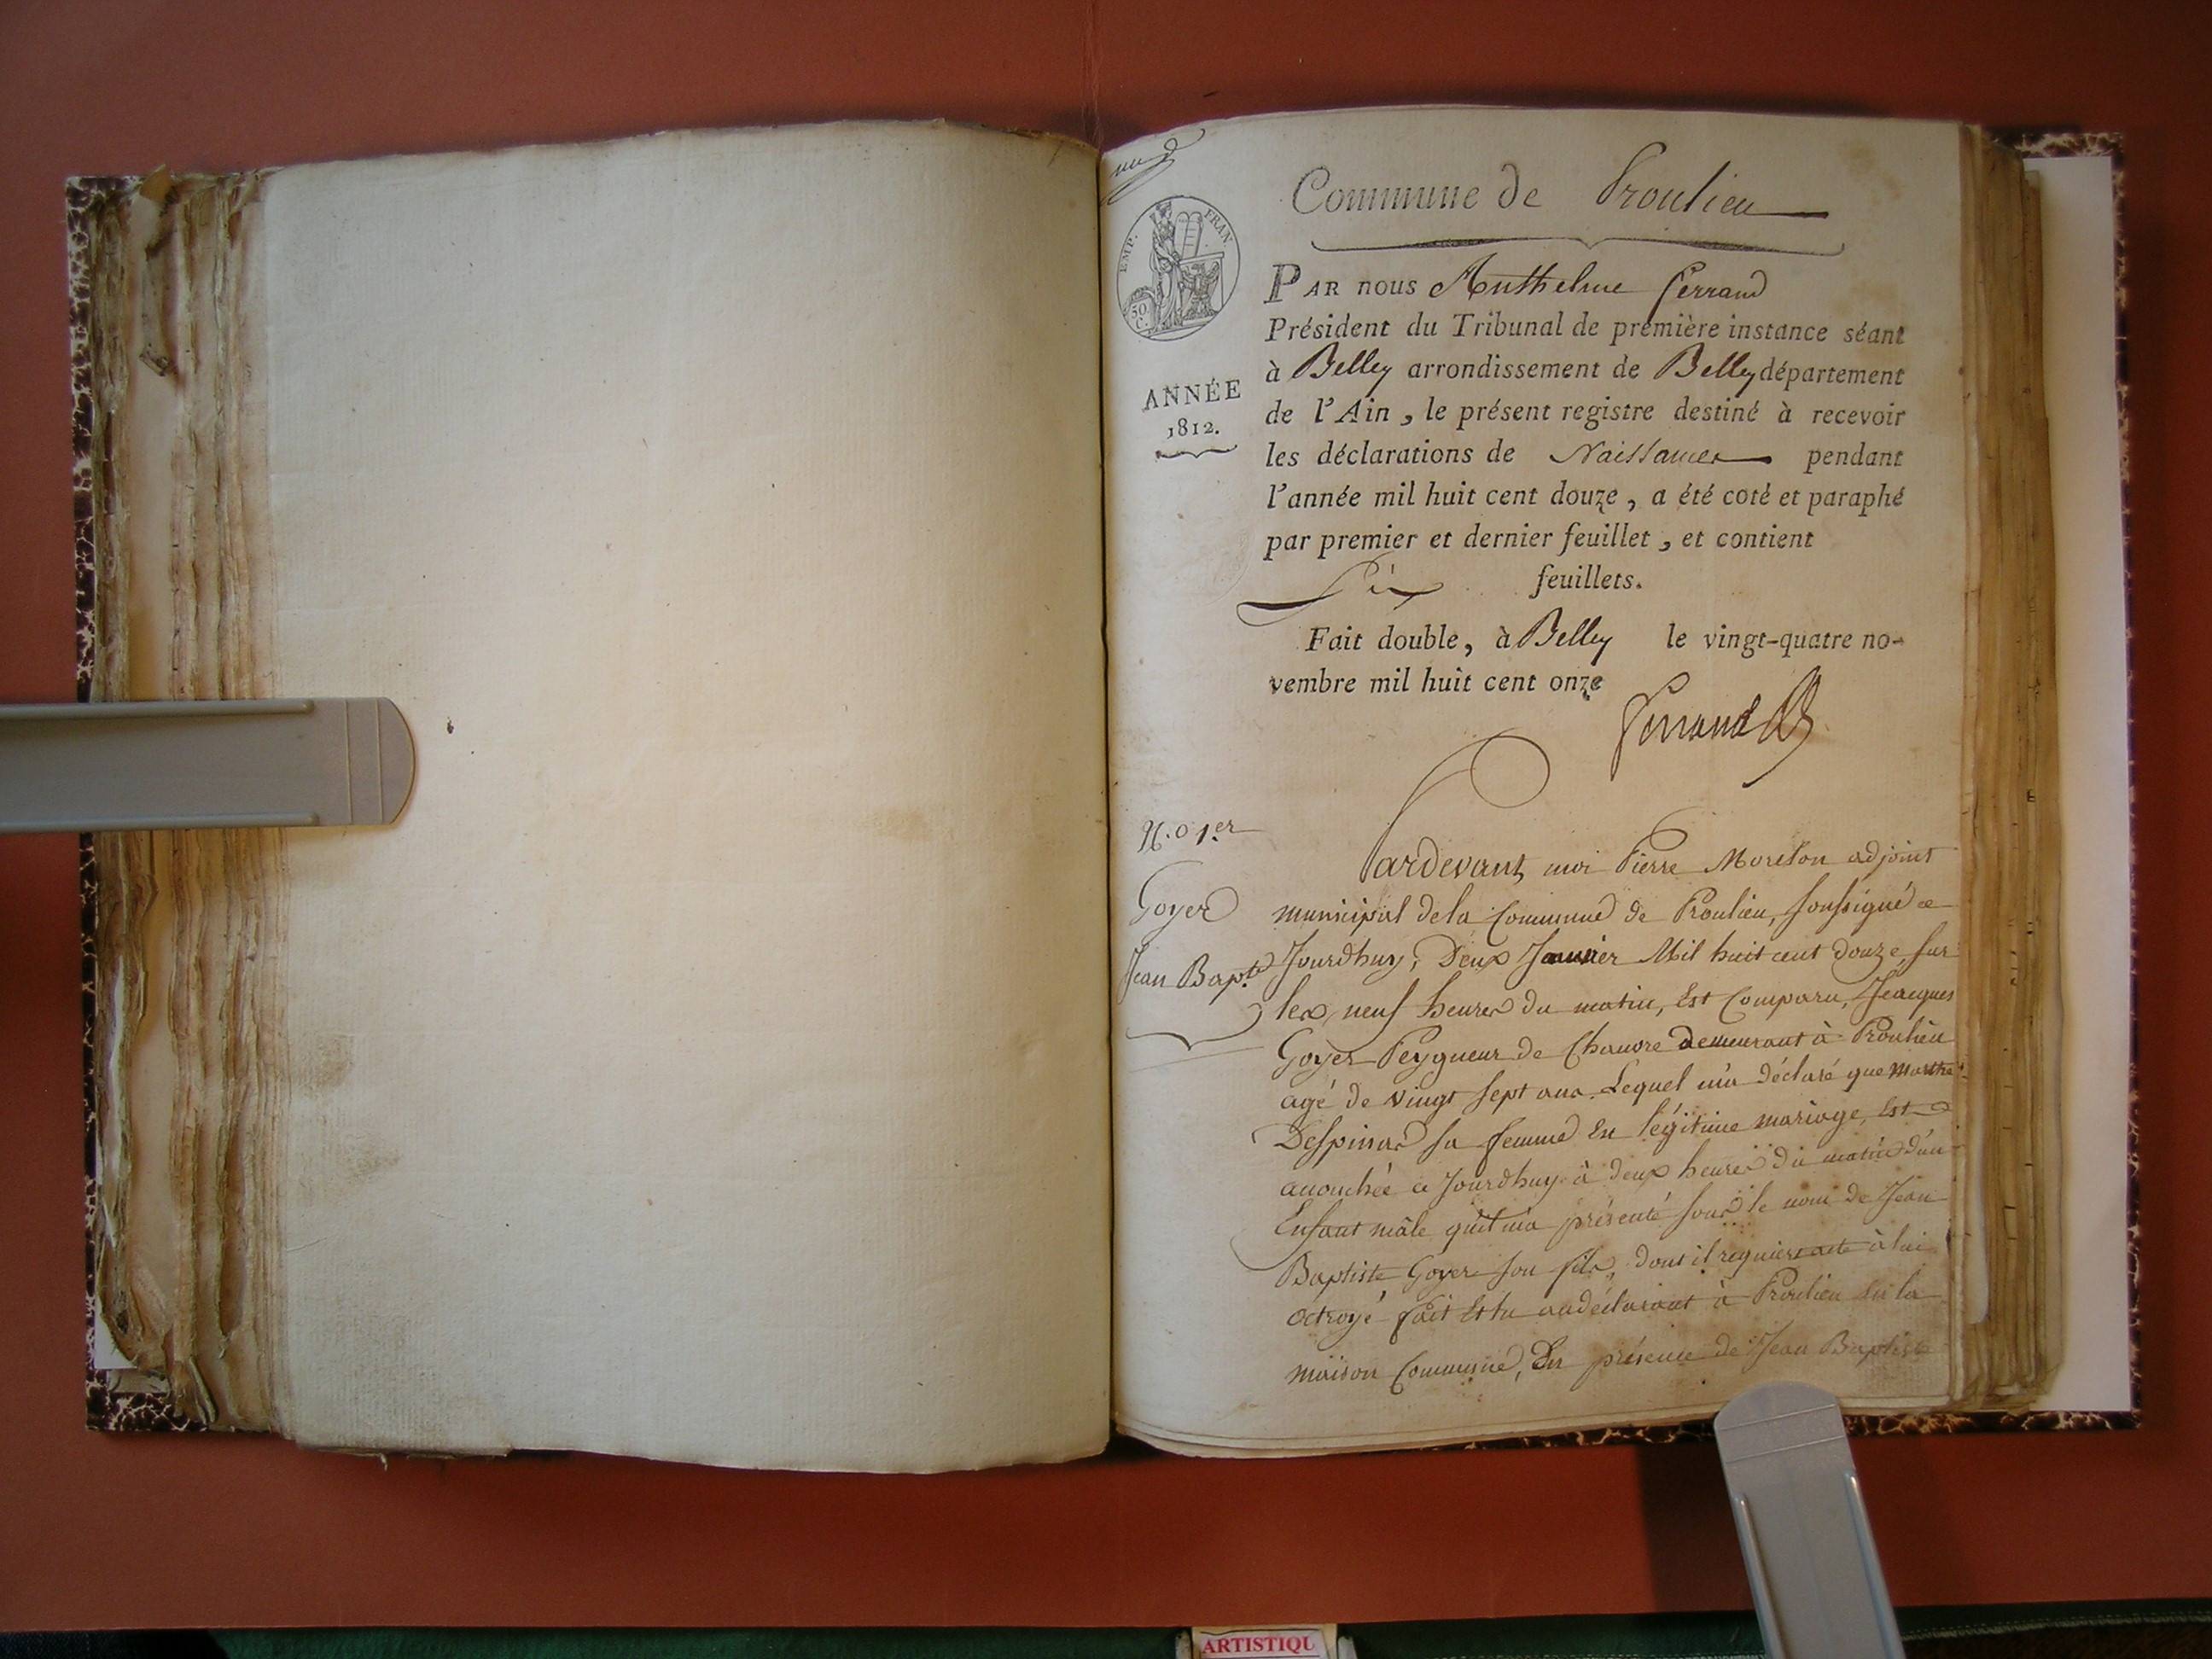 Commune de Proulieu
EMP. FRAN.
50
C.
ANNÉE
1812.
PAR nous Anthelme Ferrand
Président du Tribunal de première instance séant
à Belley arrondissement de Belley département
de l'Ain, le présent registre destiné à recevoir
les déclarations de Naissances pendant
l'année mil huit cent douze, a été coté et paraphé
par premier et dernier feuillet, et contient
Six feuillets.
Fait double, à Belley le vingt-quatre no-
vembre mil huit cent onze
Ferrand
N.o 1.er
Goyer
Jean Bap.te
Pardevant moi Pierre Morelon adjoint
municipal dela Commune de Proulieu, soussigné ce
Jourdhuy, Deux Janvier Mil huit cent douze, sur
les neuf heures du matin, Est Comparu, Jeacques
Goyer Peygneur de Chanvre demeurant à Proulieu
agé de vingt sept ans. Lequel m'a déclaré que Marthe
Despinas sa femme En légitime mariage, Est
acouchée ce Jourdhuy à deux heures du matin d'un
Enfant mâle qu'il m'a présenté sous le nom de Jean
Baptiste Goyer son fils, dont il requiert acte à lui
octroyé fait Et lu au déclarant à Proulieu En la
maison Commune, En présence de Jean Baptiste
ARTISTIQU